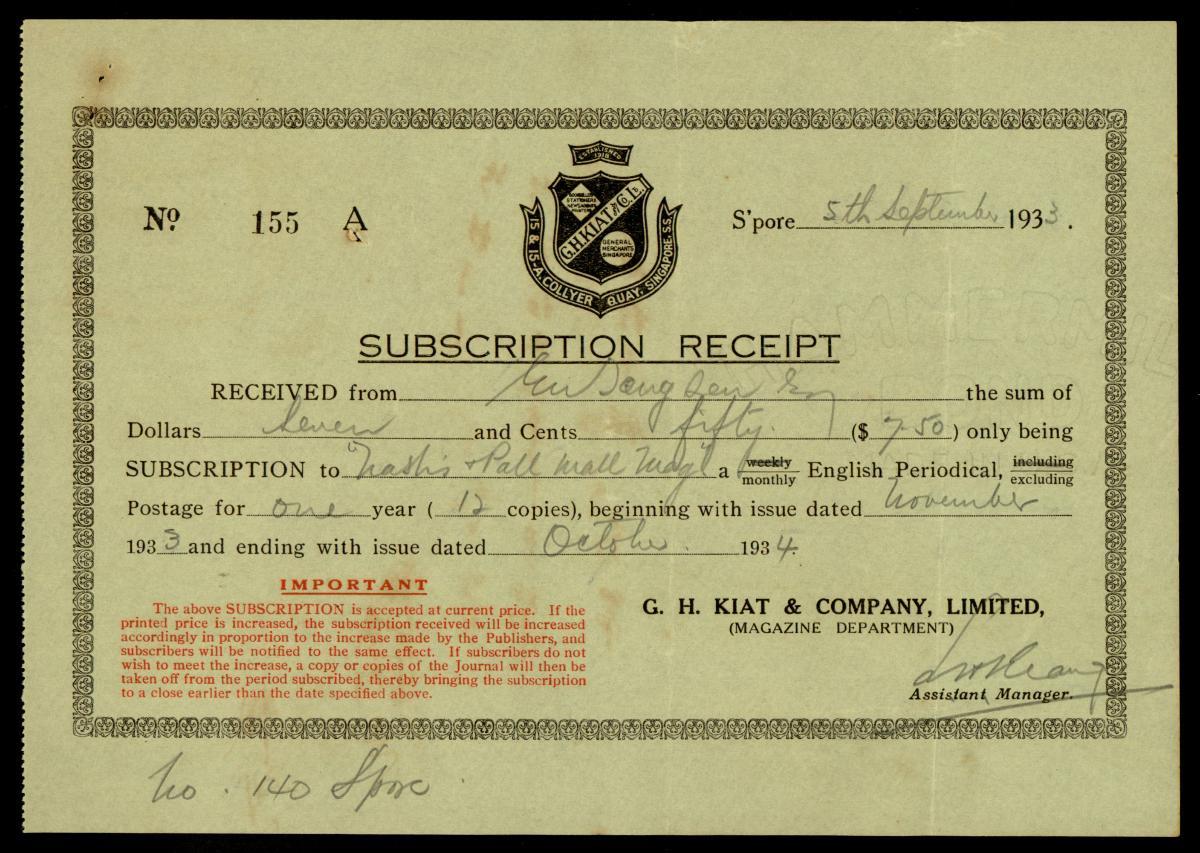 ESTABLISHED
1918
BOOKSELLERS
STATIONERS
NEWSAGENTS
PRINTERS
G.H. KIAT AND Co. Ld.
GENERAL
MERCHANTS
SINGAPORE
15 & 15-A. COLLYER QUAY. SINGAPORE. S.S.
No 155 A
S'pore 5th September 1933.
SUBSCRIPTION RECEIPT
RECEIVED from Eu Tong Sen Esq the sum of
Dollars Seven and Cents fifty. ($ 7.50) only being
SUBSCRIPTION to Nash's & Pall Mall Mag. a weekly monthly English Periodical, including excluding
Postage for one year (12 copies), beginning with issue dated November
1933 and ending with issue dated October. 1934.
IMPORTANT
The above SUBSCRIPTION is accepted at current price. If the
printed price is increased, the subscription received will be increased
accordingly in proportion to the increase made by the Publishers, and
subscribers will be notified to the same effect. If subscribers do not
wish to meet the increase, a copy or copies of the Journal will then be
taken off from the period subscribed, thereby bringing the subscription
to a close earlier than the date specified above.
G. H. KIAT & COMPANY, LIMITED,
(MAGAZINE DEPARTMENT)
Assistant Manager.
No. 140 Spore.